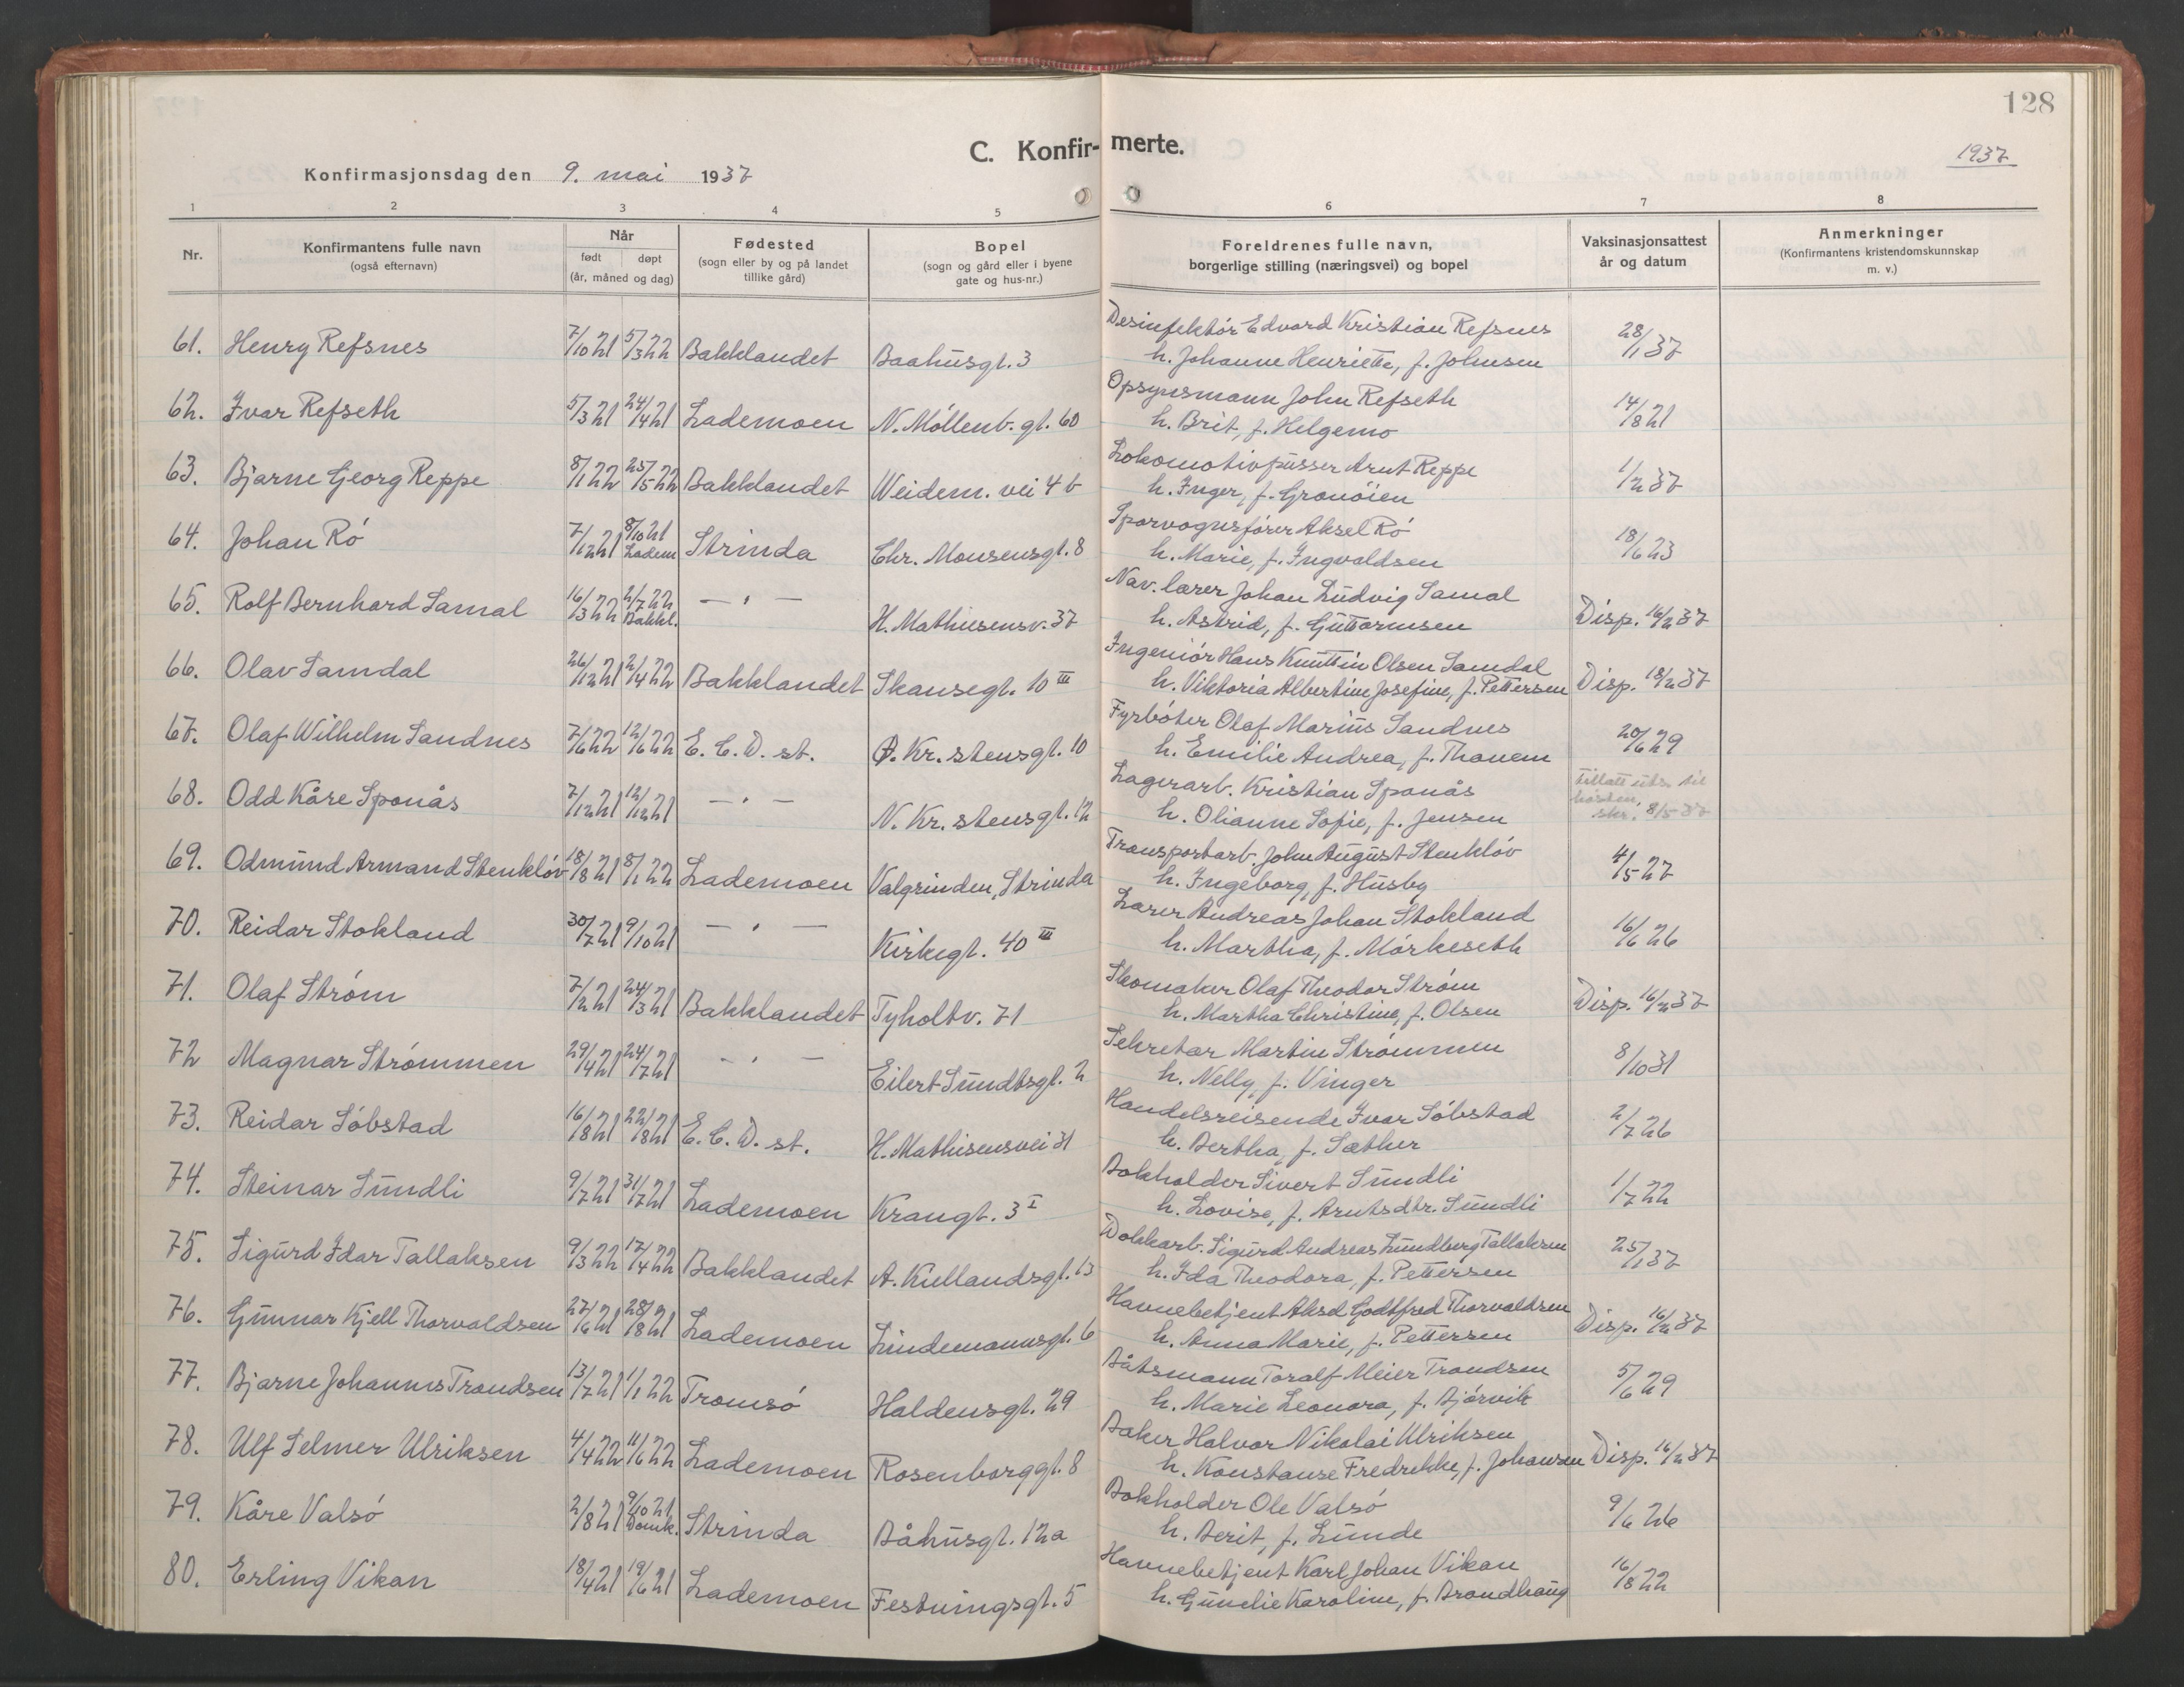 128
C. Konfirmerte.
Konfirmasjonsdag den 9. mai 1937
1937
1 2 3 4 5 6 7 8
Nr.
Konfirmantens fulle navn
(også efternavn)
Når
født døpt
(år, måned og dag)
Fødested
(sogn eller by og på landet
tillike gård)
Bopel
(sogn og gård eller i byene
gate og hus-nr.)
Foreldrenes fulle navn,
borgerlige stilling (næringsvei) og bopel
Vaksinasjonsattest
år og datum
Anmerkninger
(Konfirmantens kristendomskunnskap
m. v.)
61. Henry Refsnes 7/10 21 5/3 22 Bakklandet Baahusgt. 3 Desinfektór Edvard Kristian Refsnes 28/1 37
h. Johanne Henriette, f. Johnsen
62. Ivar Refseth 5/3 21 24/4 21 Lademoen N. Móllenb. gt. 60 Opsynsmann John Refseth 14/8 21
h. Brit, f. Helgemo
63. Bjarne Georg Reppe 8/1 22 25/5 22 Bakklandet Weidem. vei 4 b Lokomotivpusser Arnt Reppe 1/2 37
h. Inger, f. Gronóien
64. Johan Ró 7/12 21 8/10 21 Ladem Strinda Chr. Monsensgt. 8 Sporvognsfórer Aksel Ró 18/6 23
h. Marie, f. Ingvaldsen
65. Rolf Bernhard Samal 16/3 22 2/7 22 Bakkl. — " — H. Mathiesensv. 37 Nav. lærer Johan Ludvig Samal Disp. 16/2 37
h. Astrid, f. Guttormsen
66. Olav Samdal 26/12 21 2/4 22 Bakklandet Skansegt. 10 III Ingeniór Hans Knuttin Olsen Samdal Disp. 18/2 37
h. Viktoria Albertine Josefine, f. Pettersen
67. Olaf Wilhelm Sandnes 7/6 22 12/6 22 E. C. D. st. Ø. Kr. stensgt. 10 Fyrbóter Olaf Marius Sandnes 20/6 29
h. Emilie Andrea, f. Thanem
68. Odd Kåre Sponås 7/12 21 12/12 21 — " — N. Kr. stensgt. 12 Lagerarb. Kristian Sponås Tillatt uts. til
hósten, skr. 8/5-37
h. Olianne Sofie, f. Jensen
69. Odmund Armand Stenklóv 18/8 21 8/1 22 Lademoen Valgrinden, Strinda Transportarb. John August Stenklóv 4/5 27
h. Ingeborg, f. Husby
70. Reidar Stokland 30/7 21 9/10 21 — " — Kirkegt. 40 III Lærer Andreas Johan Stokland 16/6 26
h. Martha, f. Mórkeseth
71. Olaf Stróm 7/2 21 24/3 21 Bakklandet Tyholtv. 71 Skomaker Olaf Theodor Stróm Disp. 16/2 37
h. Martha Christine, f. Olsen
72 Magnar Strómmen 29/4 21 24/7 21 — " — Eilert Sundtsgt. 2 Sekretær Martin Strómmen 8/10 31
h. Nelly, f. Vinger
73. Reidar Sóbstad 16/8 21 22/8 21 E. C. D. st. H. Mathisensvei 31 Handelsreisende Ivar Sóbstad 2/7 26
h. Bertha, f. Sæther
74. Steinar Sundli 9/7 21 31/7 21 Lademoen Krangt. 3 I Bokholder Sivert Sundli 1/7 22
h. Lovise, f. Arntsdtr. Sundli
75. Sigurd Idar Tallaksen 9/3 22 17/4 22 Bakklandet A. Kiellandsgt. 13 Dokkarb. Sigurd Andreas Lundberg Tallaksen 25/1 37
h. Ida Theodora, f. Pettersen
76. Gunnar Kjell Thorvaldsen 27/6 21 28/8 21 Lademoen Lindemannsgt. 6 Havnebetjent Aksel Godtfred Thorvaldsen Disp. 16/2 37
h. Anna Marie, f. Pettersen
77. Bjarne Johannes Trondsen 13/7 21 1/1 22 Tromsó Haldensgt. 29 Båtsmann Toralf Meier Trondsen 5/6 29
h. Marie Leonora, f. Bjórvik
78. Ulf Selmer Ulriksen 4/4 22 11/6 22 Lademoen Rosenborggt. 8 Baker Halvor Nikolai Ulriksen Disp. 16/2 37
h. Konstanse Fredrikke, f. Johansen
79. Kåre Valsó 2/8 21 9/10 21 Domk. Strinda Båhusgt. 12a Bokholder Ole Valsó 9/6 26
h. Berit, f. Lunde
80. Erling Vikan 18/4 21 19/6 21 Lademoen Festningsgt. 5 Havnebetjent Karl Johan Vikan 16/8 22
h. Gunelie Karoline, f. Brandhaug